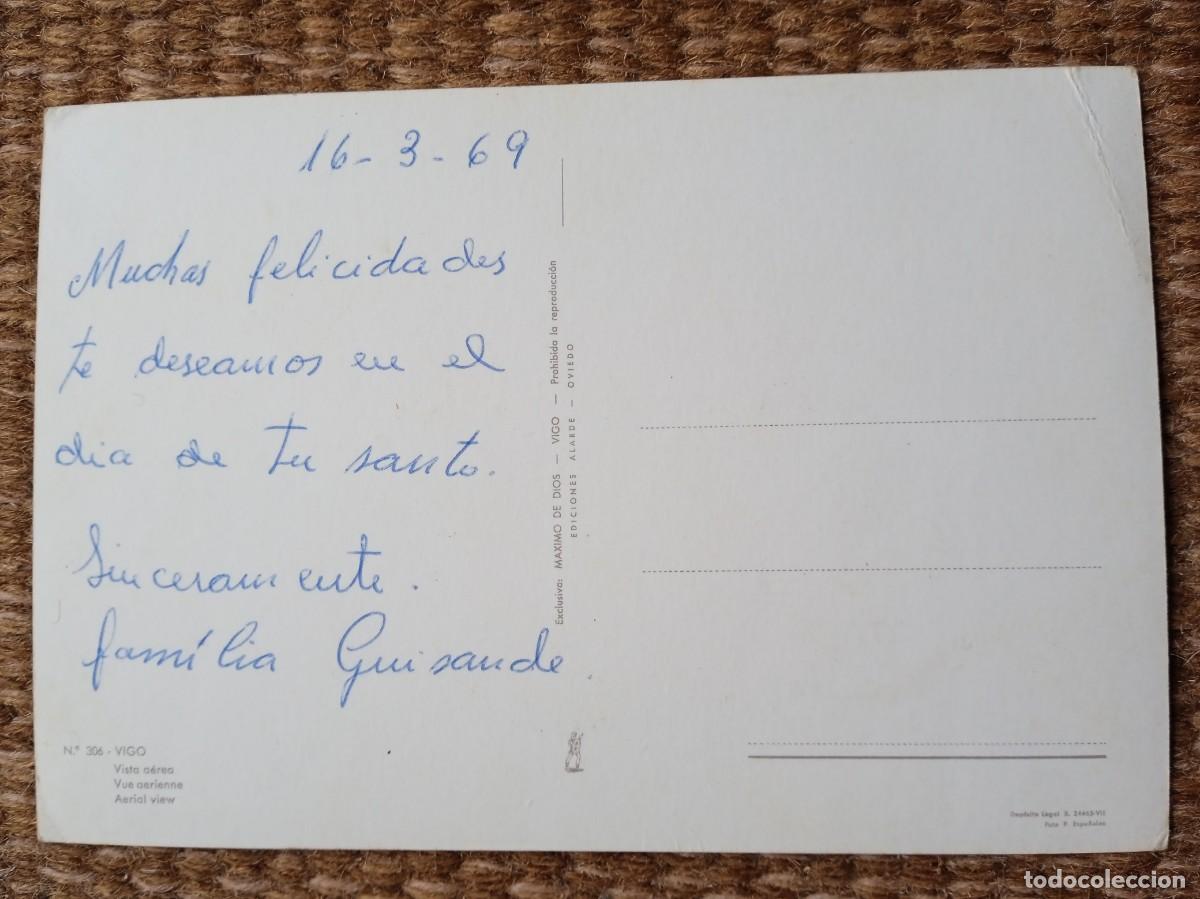 16-3-69
Muchas felicidades
te deseamos en el
dia de tu santo.
Sinceramente.
família Guisande.
N.º 306 - VIGO
Vista aérea
Vue aerienne
Aerial view
Exclusiva: MAXIMO DE DIOS — VIGO — Prohibida la reproducción
EDICIONES ALARDE — OVIEDO
Depósito Legal B. 24463-VII
Foto P. Españoles
todocoleccion